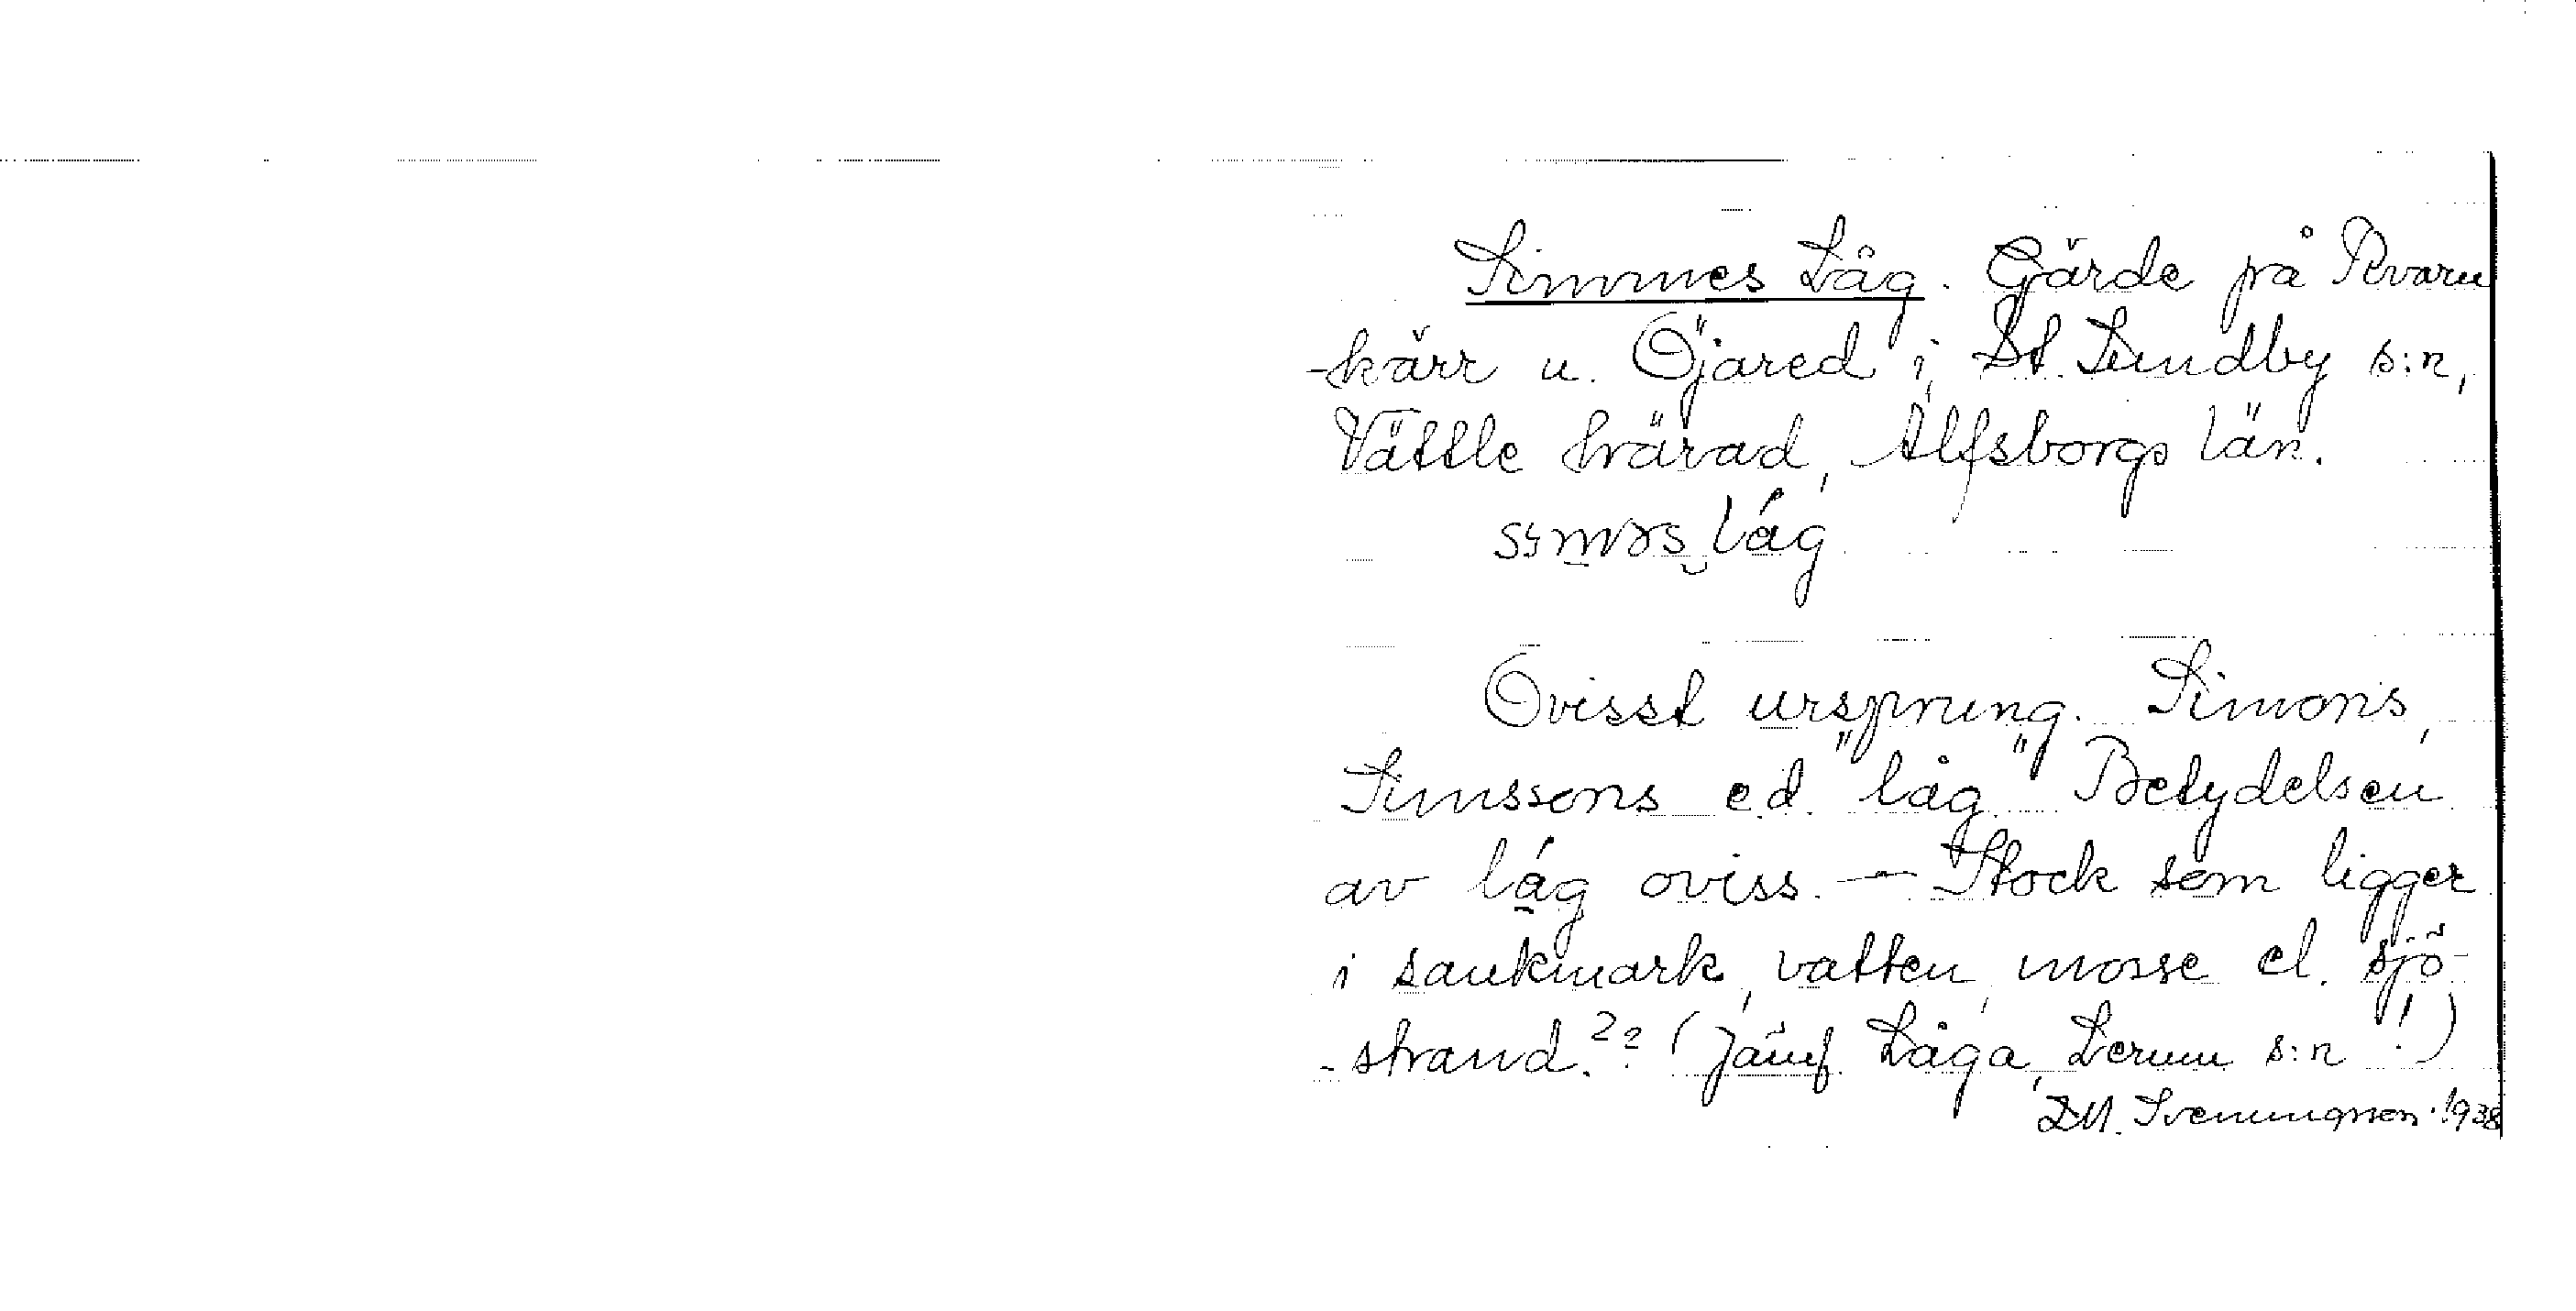 Simmes Låg. Gärde på Kvarn
-kärr u. Öjared i St. Lundby s:n,
Vättle härad, Älfsborgs län.
Ovisst ursprung. Simons,
Simssons e.d. "låg". Betydelsen
av låg oviss. — Stock som ligger
i sankmark, vatten, mosse el. sjö-
-strand.?? (Jämf. Låga, Lerum s:n!)
D.M. Svenningsson. 1938